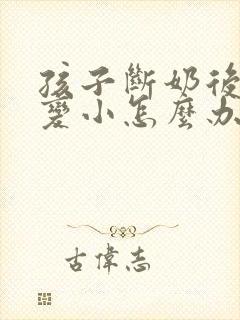 孩子斷奶後
變小怎麼办
古偉志